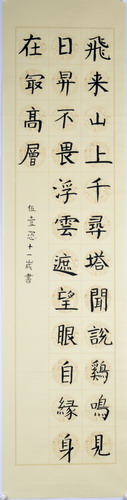 飛来山上千尋塔聞説鷄鳴見
日昇不畏浮雲遮望眼自縁身
在最高層
十一歳書